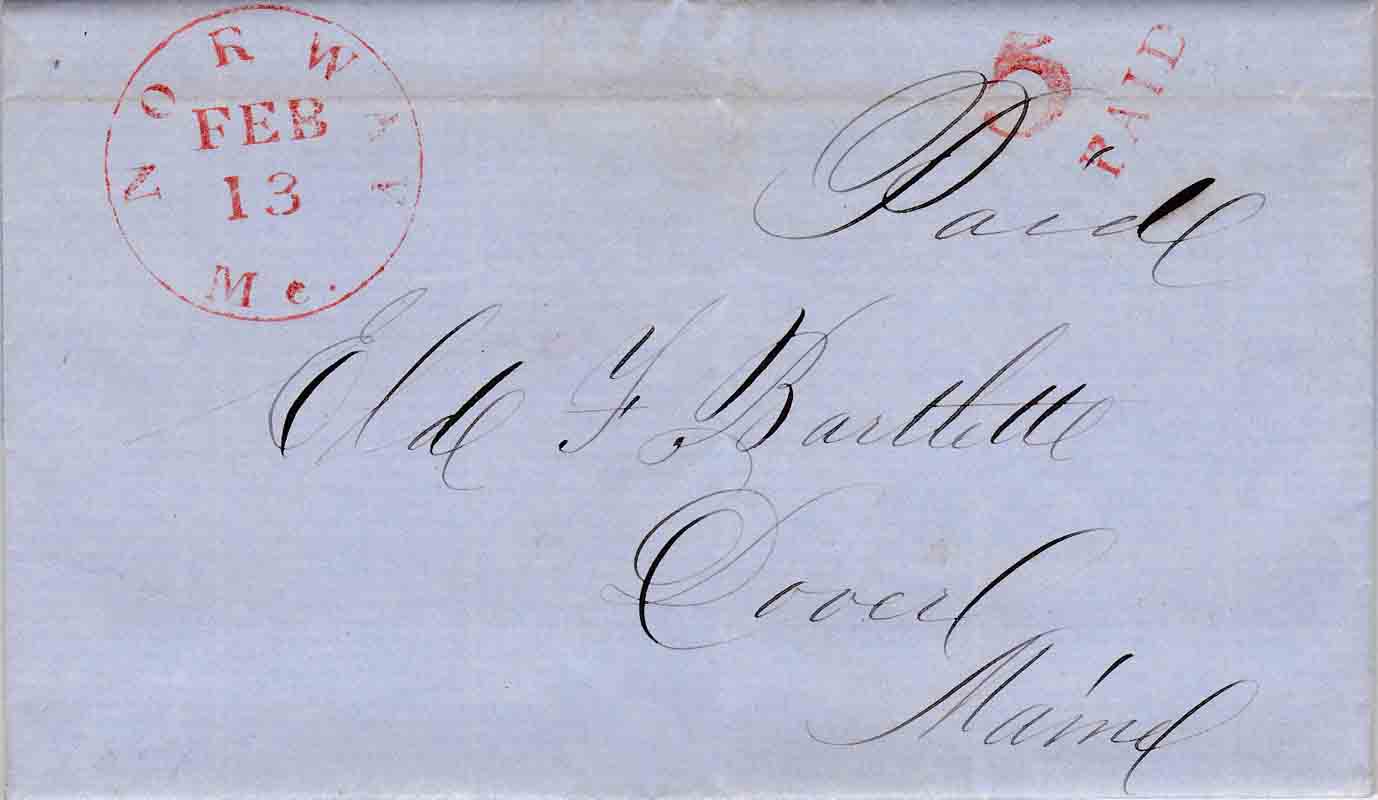 NORWAY
FEB
13
Me.
5
PAID
Paid
Eld F. Bartlett
Dover
Maine